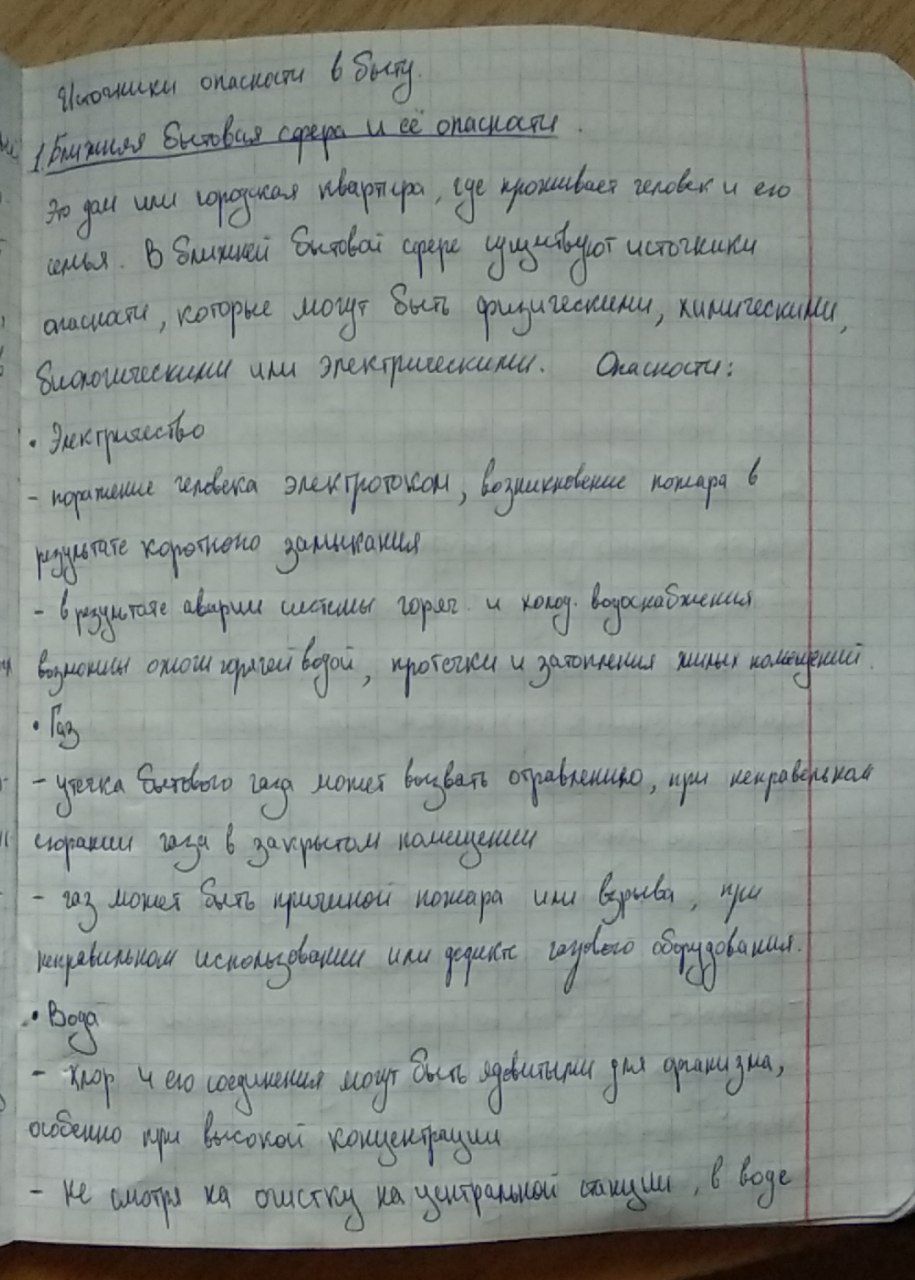 Источники опасности в быту.
1. Ближняя бытовая сфера и её опасности.
Это дом или городская квартира, где проживает человек и его
семья. В ближней бытовой сфере существуют источники
опасности, которые могут быть физическими, химическими,
биологическими или электрическими. Опасности:
• Электричество
- поражение человека электротоком, возникновение пожара в
результате короткого замыкания
- в результате аварии системы горяч. и холод. водоснабжения
возможны ожоги горячей водой, протечки и затопления жилых помещений.
• Газ
- утечка бытового газа может вызвать отравлению, при неправельном
сгорании газа в закрытом помещении
- газ может быть причиной пожара или взрыва, при
неправильном использовании или дефекте газового оборудования.
• Вода
- Хлор и его соединения могут быть ядовитыми для организма,
особенно при высокой концентрации
- не смотря на очистку на центральной станции, в воде